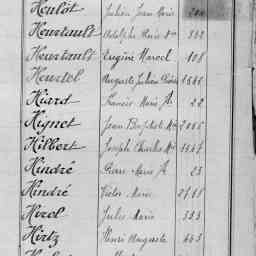 Heulot Julien Jean Marie
Heurtault Adolphe Marie 332
Heurtault Eugène Marcel 108
Heurtel Auguste Julien Pierre
Hiard Francis Marie A. 22
Hignet Jean Baptiste M.
Hilbert Joseph Charles M.
Hindré Pierre Marie A. 23
Hindré Victor Marie
Hirel Jules Marie 393
Hirtz Henri Auguste 463